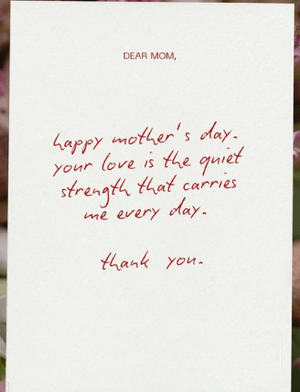 DEAR MOM,
happy mother's day.
your love is the quiet
strength that carries
me every day.
thank you.